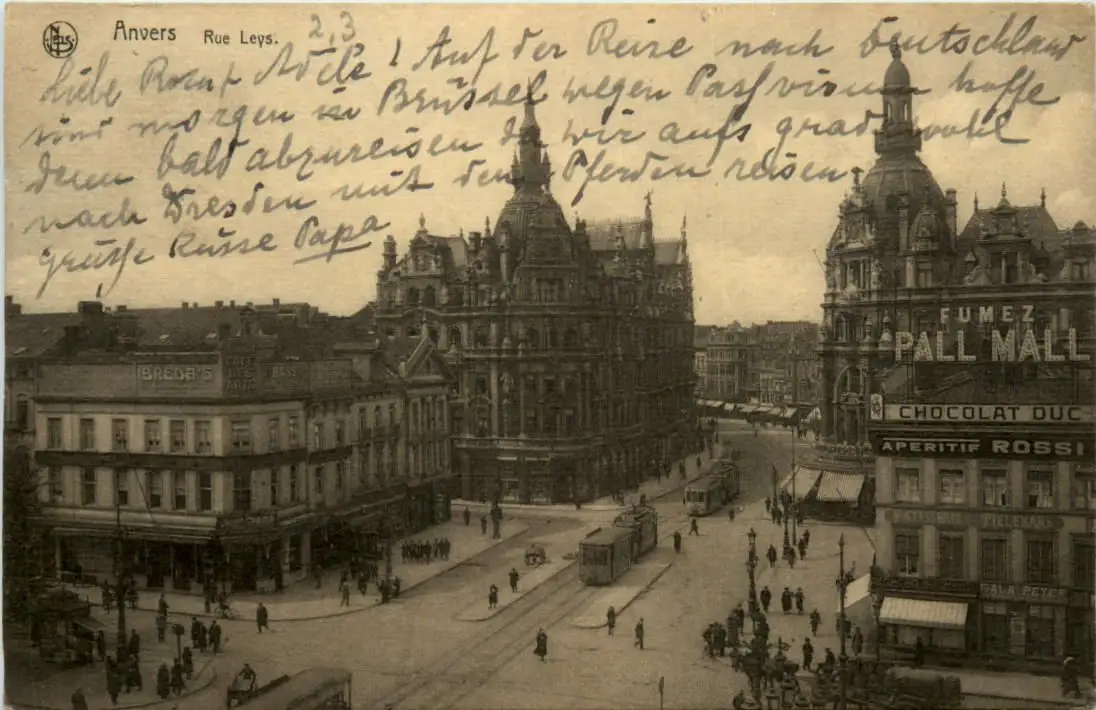 NELS
Anvers Rue Leys.
2,3
Liebe Rosa + Adele! Auf der Reise nach Deutschland
sind morgen in Brüssel wegen Paßvisum hoffe
denn bald abzureisen da wir aufs grad wohl
nach Dresden mit den Pferden reisen
grüße küsse Papa
FUMEZ
PALL MALL
BREDA'S
BASS
CHOCOLAT DUC
APERITIF ROSSI
GALA PETER